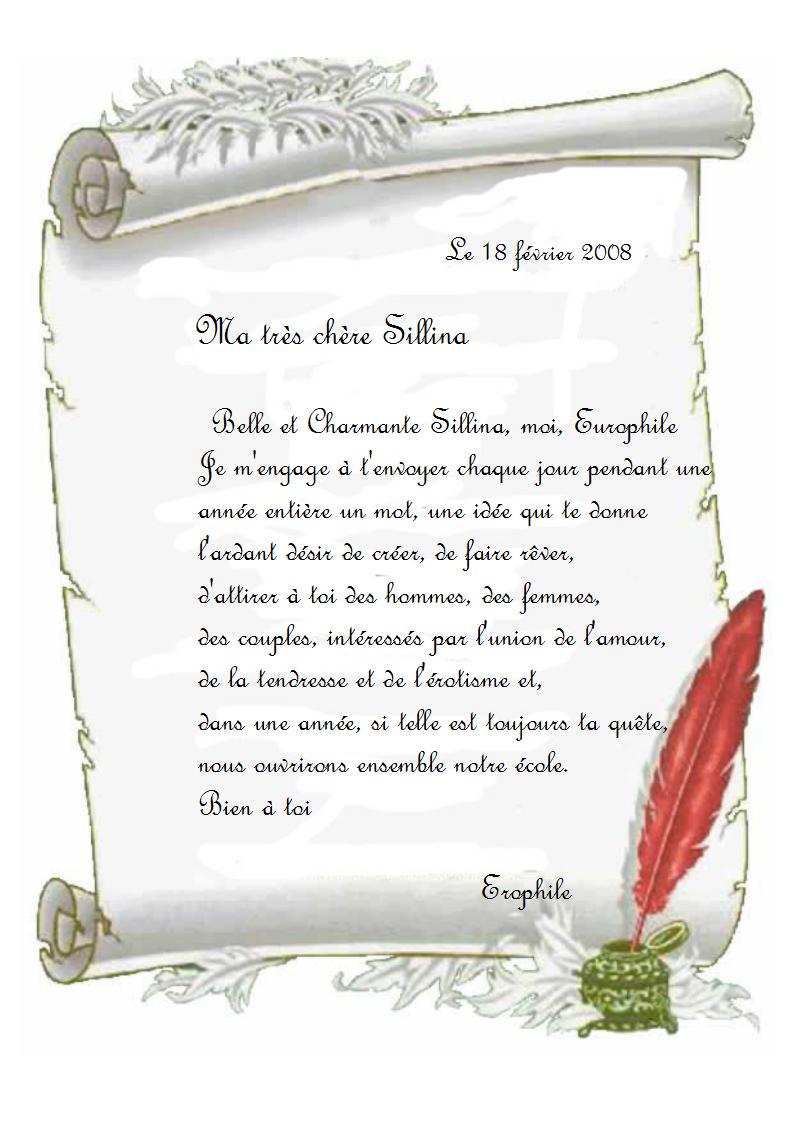 Le 18 février 2008
Ma très chère Sillina
Belle et Charmante Sillina, moi, Europhile
Je m'engage à t'envoyer chaque jour pendant une
année entière un mot, une idée qui te donne
l'ardant désir de créer, de faire rêver,
d'attirer à toi des hommes, des femmes,
des couples, intéressés par l'union de l'amour,
de la tendresse et de l'érotisme et,
dans une année, si telle est toujours ta quête,
nous ouvrirons ensemble notre école.
Bien à toi
Erophile